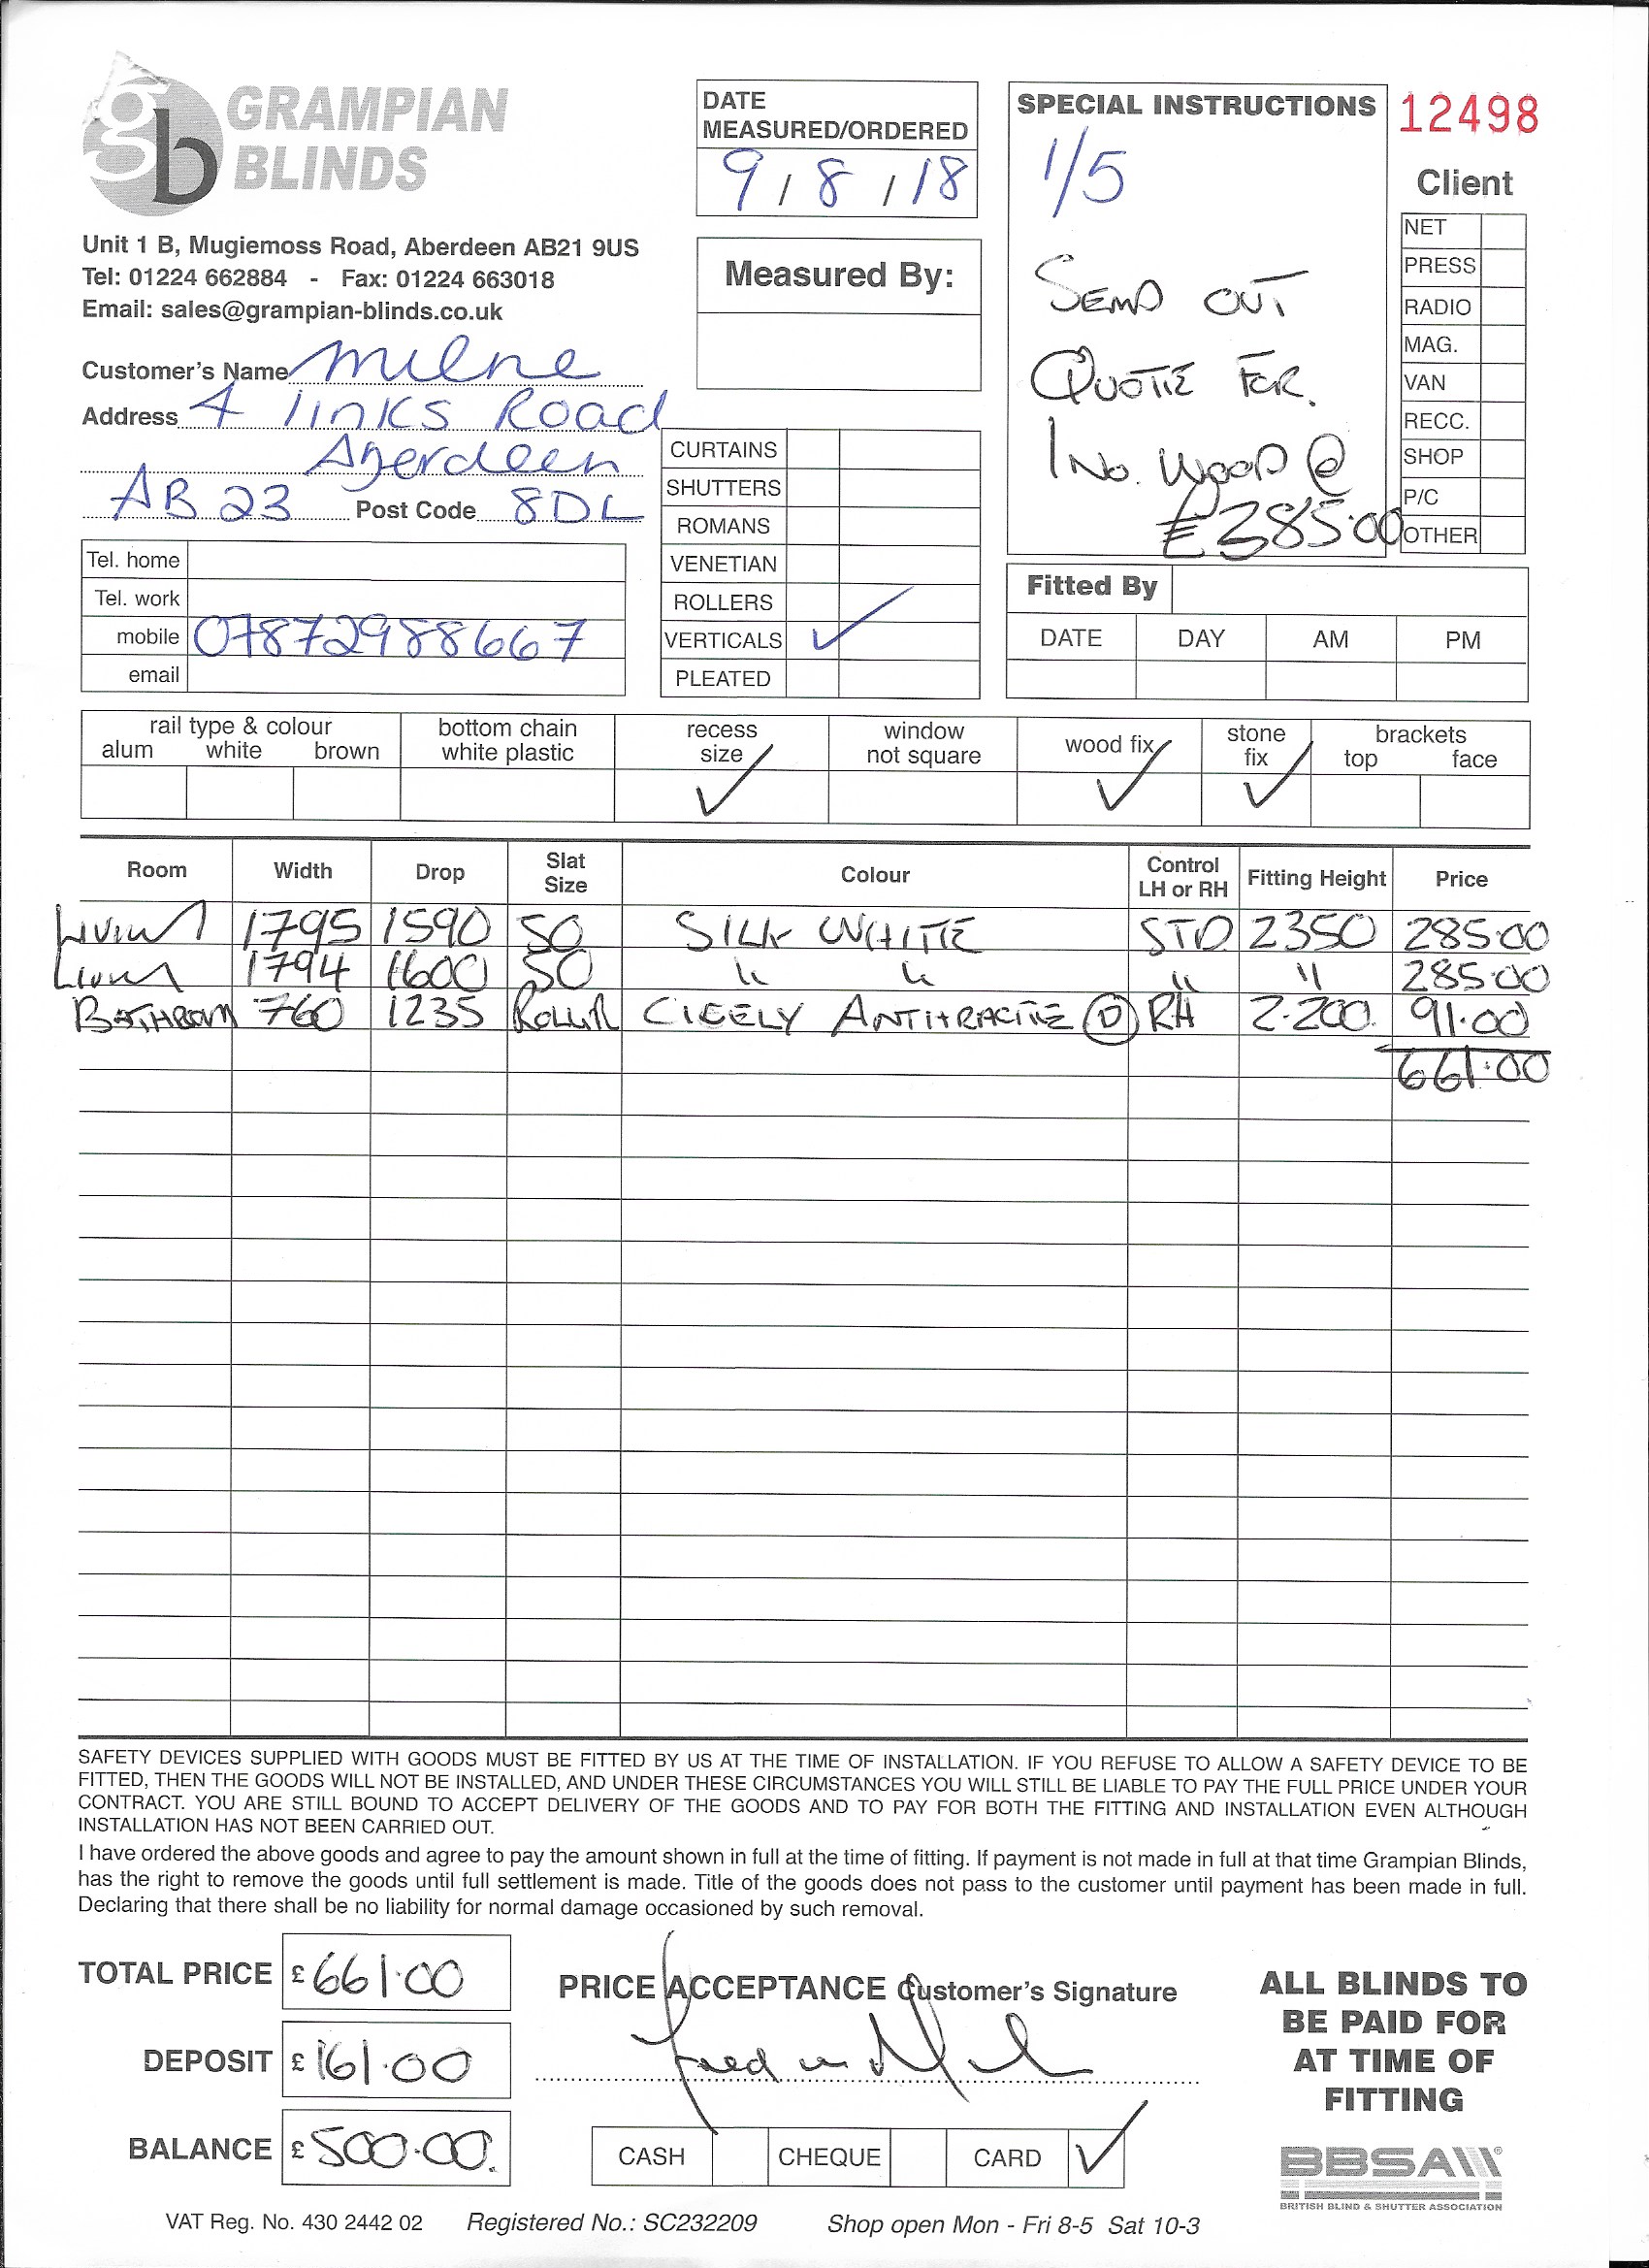 gb GRAMPIAN BLINDS
Unit 1 B, Mugiemoss Road, Aberdeen AB21 9US
Tel: 01224 662884 - Fax: 01224 663018
Email: sales@grampian-blinds.co.uk
Customer's Name Milne
Address 4 links Road
Aberdeen
AB 23 Post Code 8DL
Tel. home
Tel. work
mobile 07872988667
email
DATE
MEASURED/ORDERED
9 / 8 / 18
Measured By:
CURTAINS
SHUTTERS
ROMANS
VENETIAN
ROLLERS
VERTICALS ✓
PLEATED
SPECIAL INSTRUCTIONS
1/5
SEND OUT
QUOTE FOR.
1 No. WOOD @
£385.00
12498
Client
NET
PRESS
RADIO
MAG.
VAN
RECC.
SHOP
P/C
OTHER
Fitted By
DATE DAY AM PM
rail type & colour
alum white brown
bottom chain
white plastic
recess
size ✓
window
not square
wood fix ✓
stone
fix ✓
brackets
top face
Room Width Drop Slat Size Colour Control LH or RH Fitting Height Price
LIVING 1795 1590 50 SILK WHITE STD 2350 285.00
LIVING 1794 1600 50 " " " " 285.00
BATHROOM 760 1235 ROLLER CICELY ANTHRACITE (D) RH 2.200. 91.00
661.00
SAFETY DEVICES SUPPLIED WITH GOODS MUST BE FITTED BY US AT THE TIME OF INSTALLATION. IF YOU REFUSE TO ALLOW A SAFETY DEVICE TO BE
FITTED, THEN THE GOODS WILL NOT BE INSTALLED, AND UNDER THESE CIRCUMSTANCES YOU WILL STILL BE LIABLE TO PAY THE FULL PRICE UNDER YOUR
CONTRACT. YOU ARE STILL BOUND TO ACCEPT DELIVERY OF THE GOODS AND TO PAY FOR BOTH THE FITTING AND INSTALLATION EVEN ALTHOUGH
INSTALLATION HAS NOT BEEN CARRIED OUT.
I have ordered the above goods and agree to pay the amount shown in full at the time of fitting. If payment is not made in full at that time Grampian Blinds,
has the right to remove the goods until full settlement is made. Title of the goods does not pass to the customer until payment has been made in full.
Declaring that there shall be no liability for normal damage occasioned by such removal.
TOTAL PRICE £ 661.00
DEPOSIT £ 161.00
BALANCE £ 500.00.
PRICE ACCEPTANCE Customer's Signature
CASH CHEQUE CARD ✓
ALL BLINDS TO
BE PAID FOR
AT TIME OF
FITTING
BBSA
BRITISH BLIND & SHUTTER ASSOCIATION
VAT Reg. No. 430 2442 02 Registered No.: SC232209 Shop open Mon - Fri 8-5 Sat 10-3